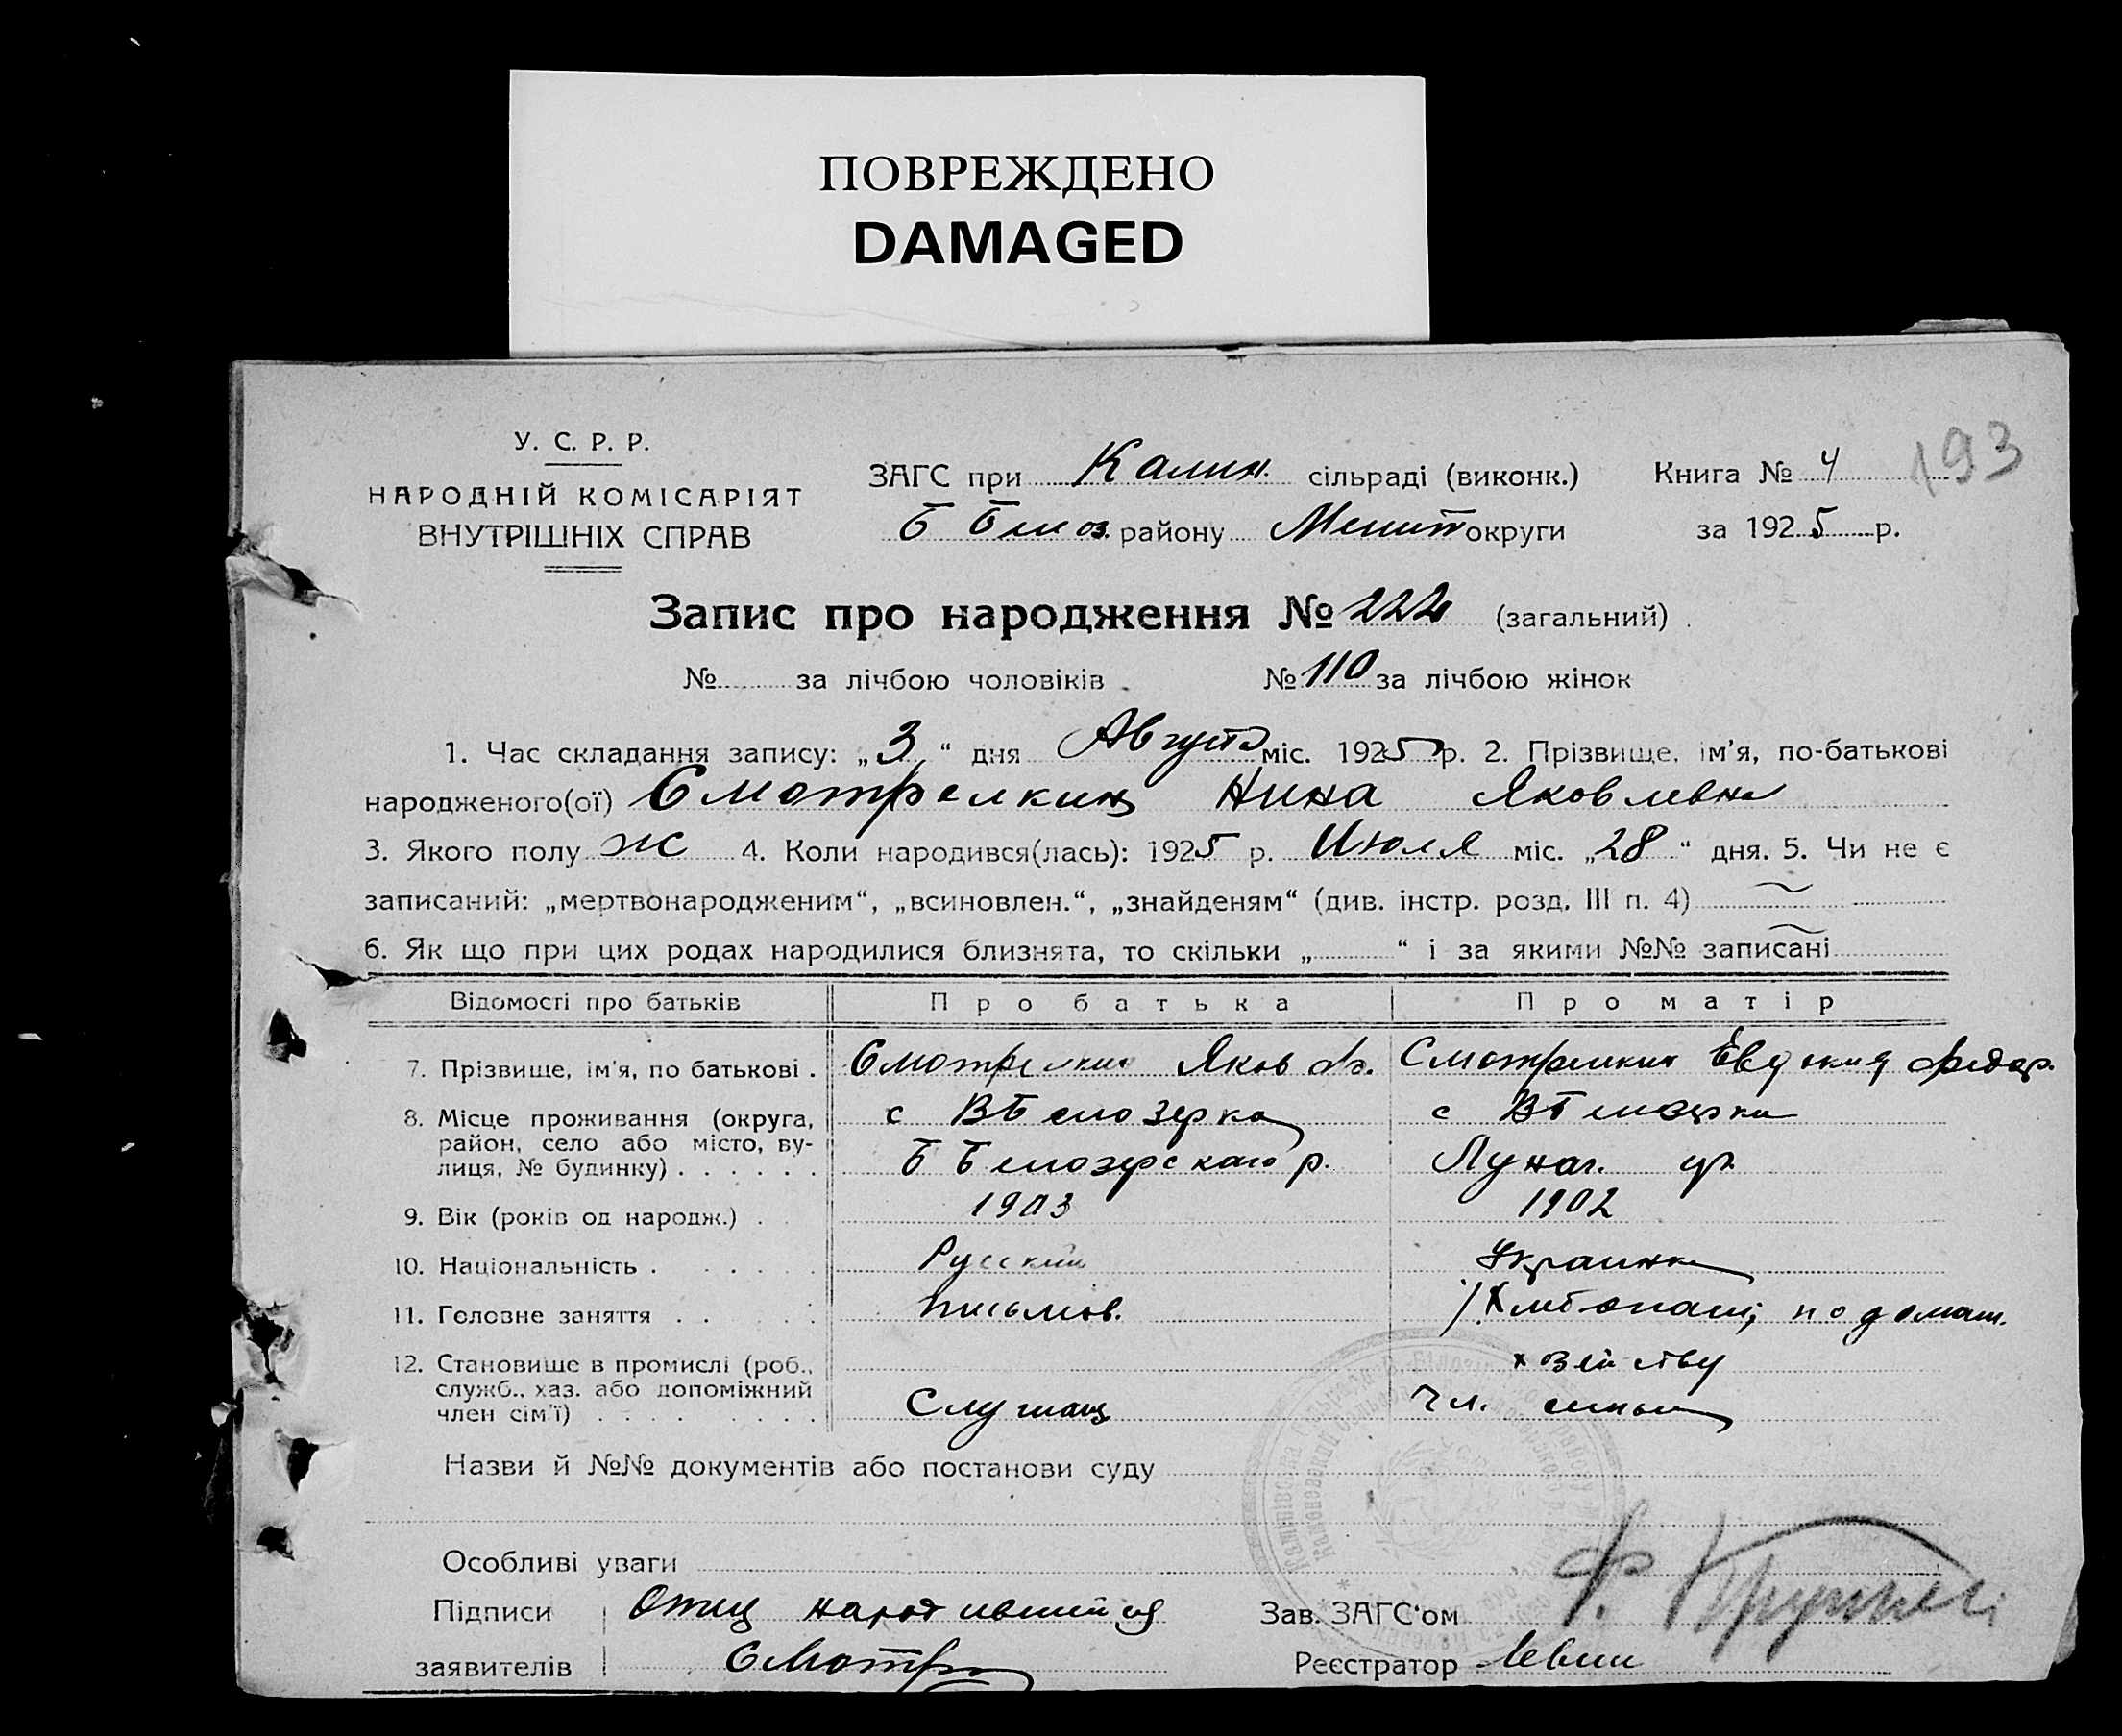 ПОВРЕЖДЕНО
DAMAGED
193
У. С. Р. Р.
НАРОДНІЙ КОМІСАРІЯТ
ВНУТРІШНІХ СПРАВ
ЗАГС при Калин. сільраді (виконк.) Книга № 4
Б Белоз. району Мелит округи за 1925 р.
Запис про народження № 222 (загальний)
№ за лічбою чоловіків № 110 за лічбою жінок
1. Час складання запису: „3“ дня Августа міс. 1925 р. 2. Прізвище, ім'я, по-батькові
народженого(ої) Смотрелкин Нина Яковлевна
3. Якого полу Ж 4. Коли народився(лась): 1925 р. Июля міс. „28“ дня. 5. Чи не є
записаний: „мертвонародженим“, „всиновлен.“, „знайденям“ (див. інстр. розд. III п. 4)
6. Як що при цих родах народилися близнята, то скільки „ “ і за якими №№ записані
Відомості про батьків Про батька Про матір
7. Прізвище, ім'я, по батькові . Смотрелкин Яков Смотрелкин Евдокия Федор.
8. Місце проживання (округа, с ВБелозерка с ВБелозерка
район, село або місто, ву-
лиця, № будинку) . . . . . . Б Белозерского р.
9. Вік (років од народж.) . . 1903 1902
10. Національність . . . . . . Русский Украинка
11. Головне заняття . . . . . Письмов. Хлебопаш; по домаш.
12. Становище в промислі (роб., хозяйству
служб., хаз. або допоміжний
член сім'ї) . . . . . . . . Служащ Чл. семьи
Назви й №№ документів або постанови суду
Особливі уваги
Підписи Отец народившейся Зав. ЗАГС'ом
заявителів Смотр Реєстратор